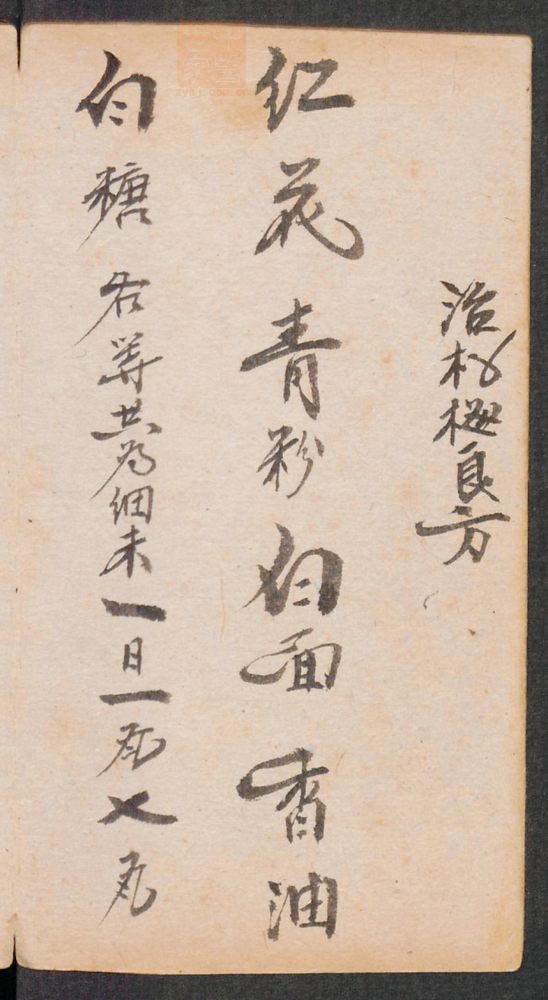 治杉極良方
红花青粉白面香油
白糖右等共为细末一日一励乂丸